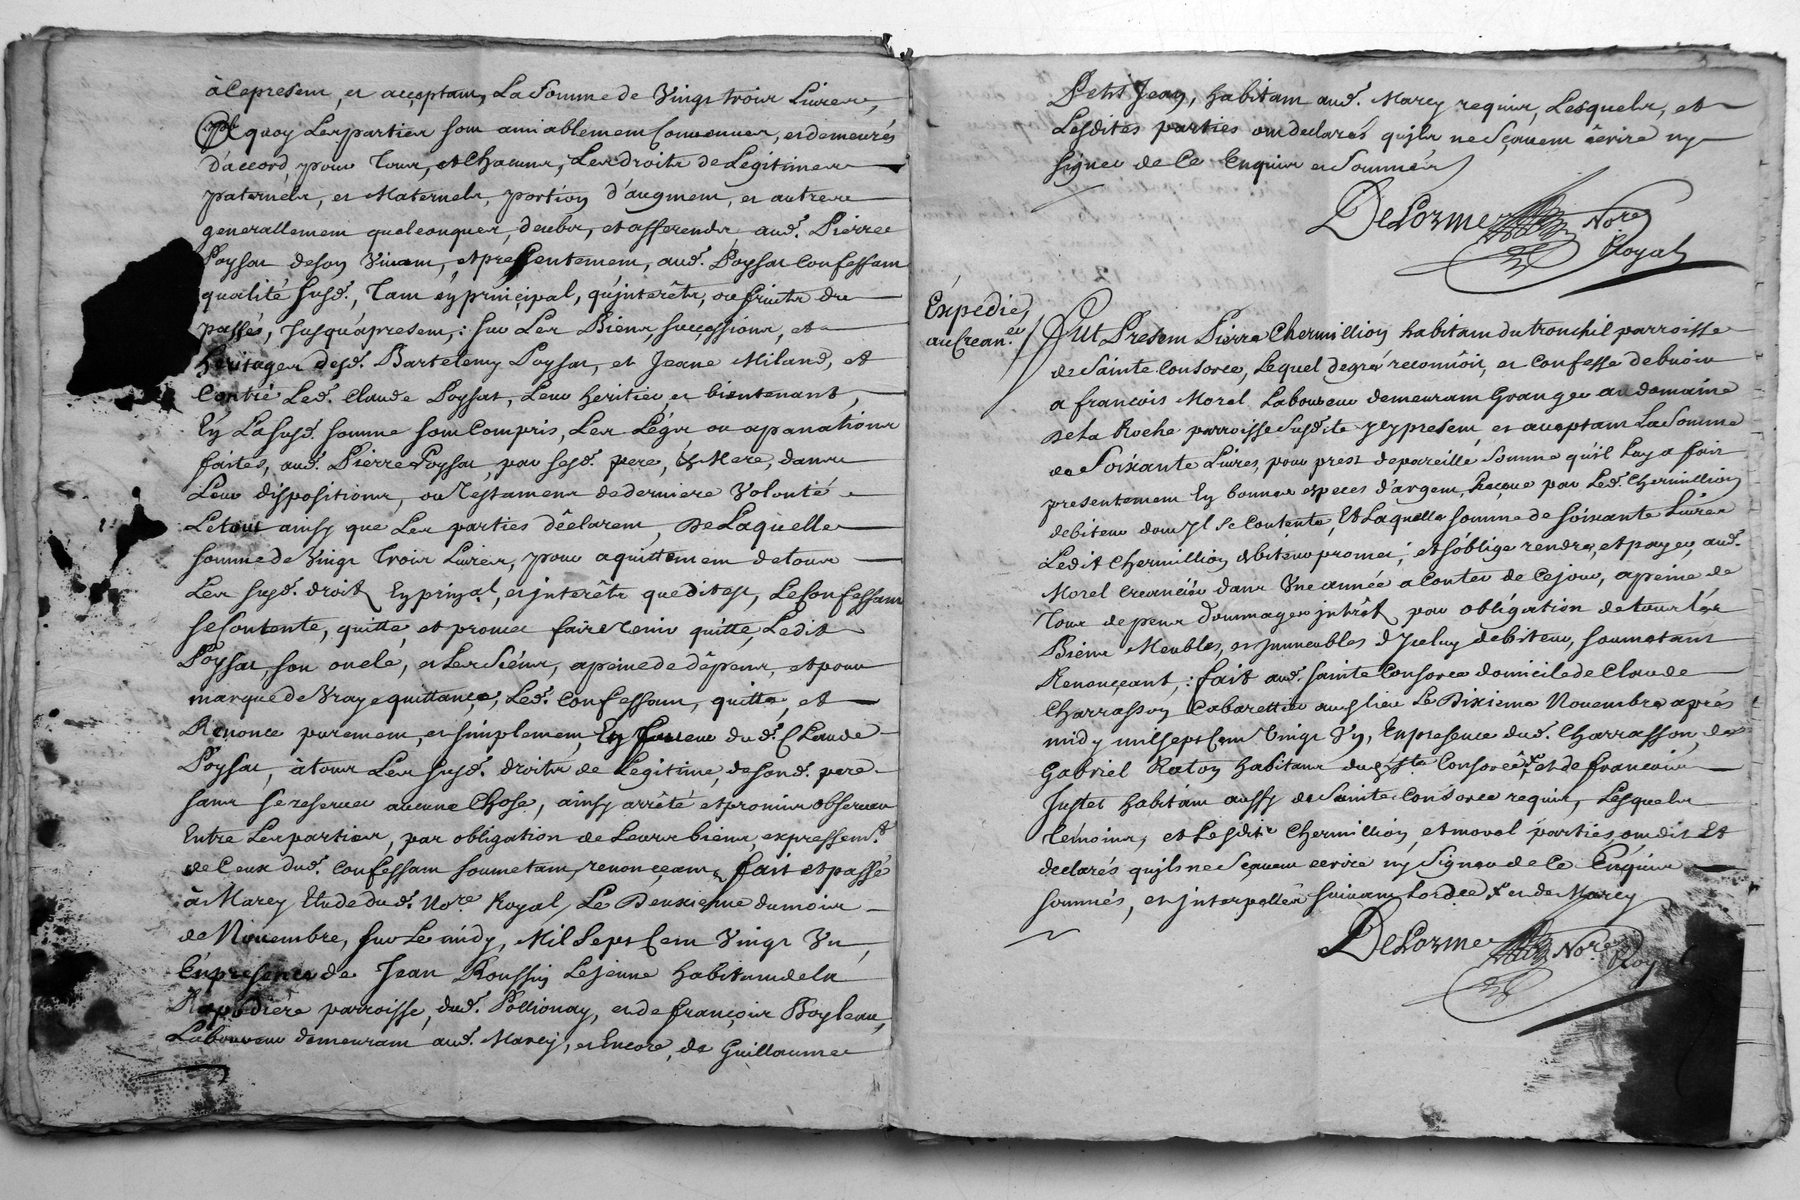 à Ce present, et acceptant, La Somme de Vingt trois Livres,
a quoy Les parties sont amiablement Convenues, et demeurés
d'accord, pour Tous, et Chacuns, Les droits de Legitimes
paternels, et Maternels, portion d'augment, et autres
generallement quelconques, deubs, et afferends aud.t Pierre
Poysat de son Vivant, et presentement, aud.t Poysat Confessant
qualité susd., Tant en principal, qu'interêts, ou fruits du
passés, Jusqu'apresent, : sur Les Biens, successions, et
heritages desd. Bartelemy Poysat, et Jeane Miland, et
Contre Led. Claude Poysat, Leur heritier, et bientenant,
En La susd. somme sont Compris, Les Légts ou apanations
faites, aud. Pierre Poysat, par sesd. pere, & Mere, dans
Leur dispositions, ou Testament de derniere Volonté
Le tout ainsy que Les parties declarent, De Laquelle
somme de Vingt Trois Livres, pour aquittement de tous
Les susd. droits En prinpal, et interêts que dit est, Le Confessant
se Contente, quitte, et promet faire Tenir quitte, Ledit
Poysat, son oncle, et Les Siens, a peine de dêpens, et pour
marque de Vraye quittance, Led. Confessant, quitte, et
Renonce purement, et simplement, En faveur dud. Claude
Poysat, à tous Les susd. droits de Legitime, de sond. pere
sans se reserver aucune Chose, ainsy arrêté et promis observer
Entre Les parties, par obligation de Leurs biens, expressem.t
de Ceux dud. Confessant soumetant, renonçant, fait et passé
à Marcy Etude dud. No.re Royal, Le Deuxieme du mois
de Novembre, sur Le midy, Mil Sept Cent Vingt Un,
En presence de Jean Roussin Lejeune habitant de la
Repodiere parroisse, dud. Pollionay, et de françois Boyleau,
Laboureur demeurant aud. Marcy, et Encore de Guillaume
Petit Jean, habitant aud. Marcy requis, Lesquels, et
Lesdites parties ont declarés qu'ils ne Sçavent êcrire ny
signer de Ce Enquis et Sommés
DeLorme No.re
Royal
Expedié
au Crean.er
Fut Present Pierre Chermillion habitant du tronchil parroisse
de Sainte Consorce, Lequel de gré reconnoit, et Confesse debvoir
a françois Morel Laboureur demeurant Granger au domaine
de la Roche parroisse Susdite Icy present, et acceptant La Somme
de Soixante Livres, pour prest de pareille Somme qu'il Luy a fait
presentement En bonnes especes d'argent, Receue par Led. Chermillion
debiteur dont Il se Contente, Et Laquelle somme de soixante Livres
Ledit Chermillion debiteur promet, et s'oblige rendre, et payer, aud.
Morel Creancier dans Une année a Conter de Cejour, a peine de
Tous depens dommages intrêt par obligation de tous Les
Biens Meubles, et immeubles d'Iceluy debiteur, soumetant
Renonçeant, : fait aud. Sainte Consorce domicile de Claude
Charrasson Cabarettier aud. lieu Le Dixieme Novembre aprés
midy mil Sept Cent Vingt Un, En presence dud. Charrasson, de
Gabriel Raton habitans dud. Ste Consorce et de françois
Justet habitant aussy de Sainte Consorce requis, Lesquels
temoins, et Lesdits Chermillion, et morel parties, ont dit Et
declarés qu'ils ne Sçavent ecrire ny Signer de Ce Enquis
sommés, et Interpellés suivant Lordce et de Marcy
DeLorme No.re
Royal